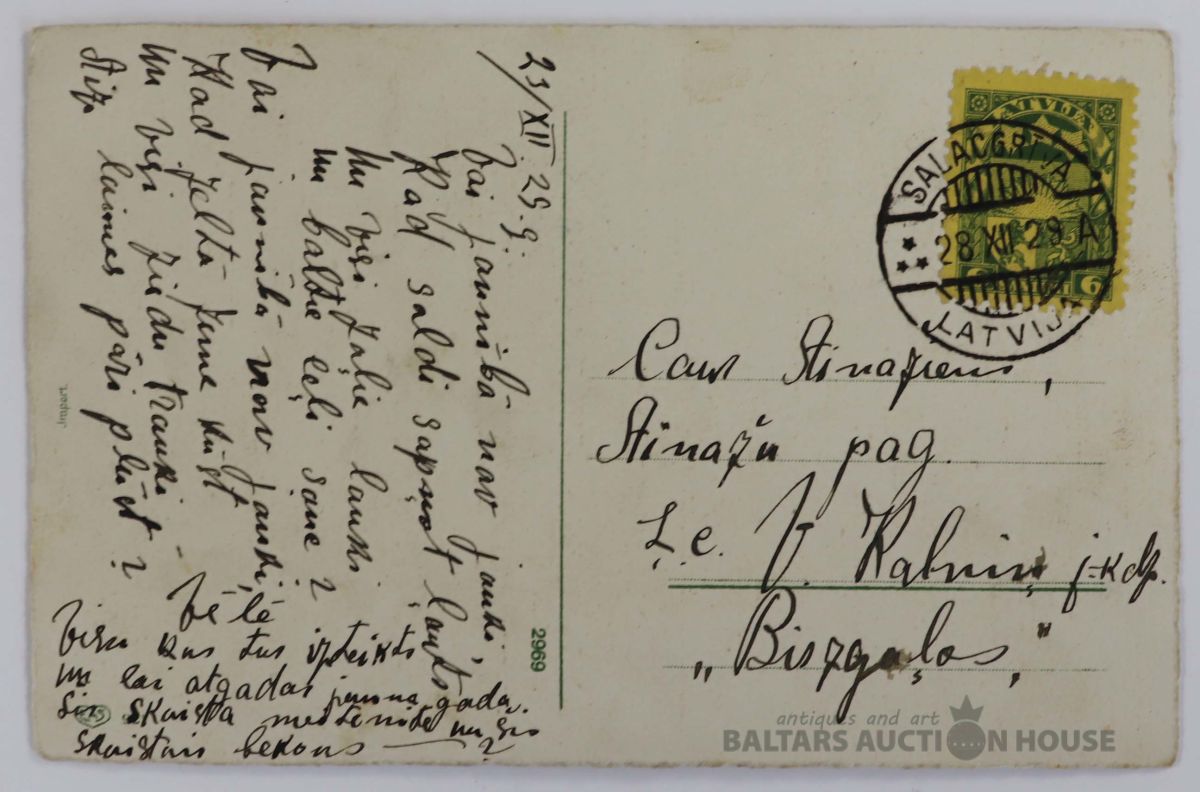 23/XII. 29. g.
Vai jaunība nav jauki,
Kad saldi sapņot ļauts
Un visi zaļie lauki
un baltie ceļi sauc?
Vai jaunība nav jauki,
Kad zelta zeme kust
Un visi ziedu trauki -
Stīga laimes pāri plūst?
Vēlē
visu kas tus izteikts
un lai atgadas jauna gadā.
šis skaista meitenīte un šis
skaistais bekons — ?
2969
Import.
LATVIJA
6 6
SALACGRĪVA
28 XII 29 A
LATVIJA
Caur Ainažiem,
Ainažu pag.
Ļ. c. V. Kalniņ j-kdz.
„Birzgaļos"
antiques and art
BALTARS AUCTION HOUSE